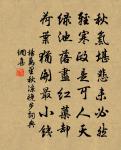 秋氣堪悲未必然
輕寒政是可人天
綠池落盡紅蕖却
荷葉猶開最小錢
楊萬里秋涼晚步詞典
網喜